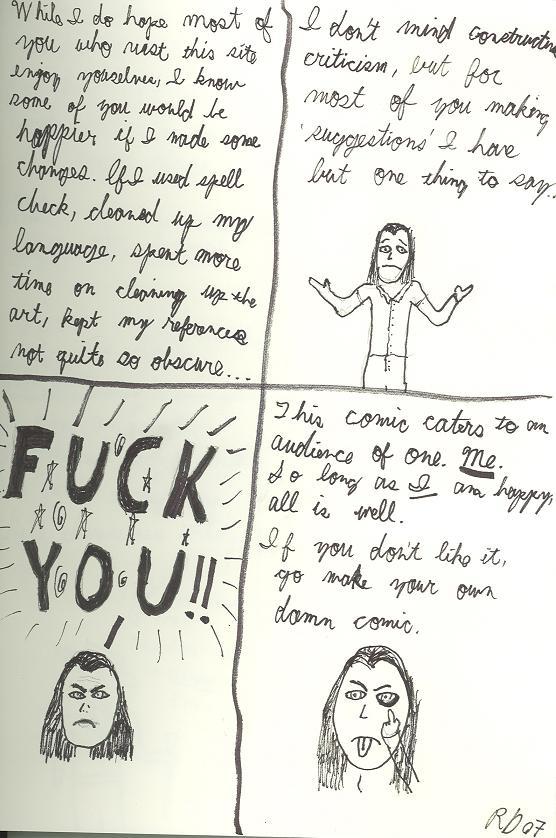 While I do hope most of
you who vist this site
enjoy youselves, I know
some of you would be
happier if I made some
changes. If I used spell
check, cleaned up my
language, spent more
time on cleaning up the
art, kept my references
not quite so obscure...
I don't mind constructive
criticism, but for
most of you making
'suggestions' I have
but one thing to say...
FUCK
YOU!!
This comic caters to an
audience of one. Me.
So long as I am happy,
all is well.
If you don't like it,
go make your own
damn comic.
RD 07